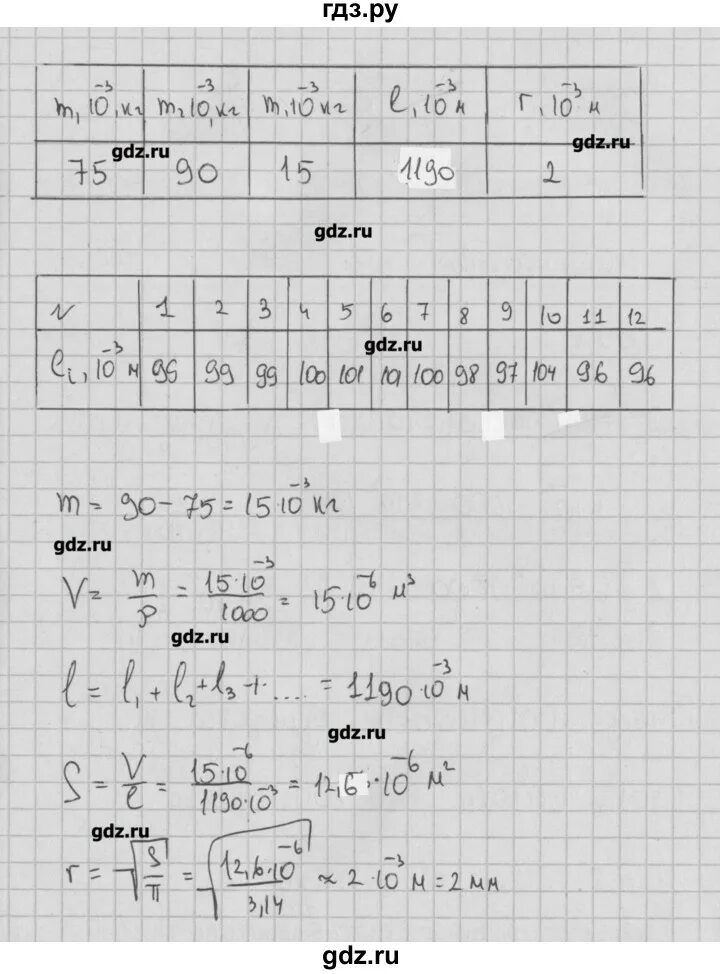 гдз.ру
m₁, 10⁻³, кг m₂ 10⁻³, кг m, 10⁻³ кг l, 10⁻³ м r, 10⁻³ м
gdz.ru gdz.ru
75 90 15 1190 2
gdz.ru
N 1 2 3 4 5 6 7 8 9 10 11 12
gdz.ru
lᵢ, 10⁻³ м 99 99 100 101 100 98 97 104 96 96
m = 90 - 75 = 15·10⁻³ кг
gdz.ru
V = m/ρ = 15·10⁻³/1000 = 15·10⁻⁶ м³
gdz.ru
l = l₁ + l₂ + l₃ + .... = 1190·10⁻³ м
gdz.ru
S = V/l = 15·10⁻⁶/1190·10⁻³ = 12,6·10⁻⁶ м²
gdz.ru
r = √S/π = √12,6·10⁻⁶/3,14 ≈ 2·10⁻³ м = 2 мм
gdz.ru